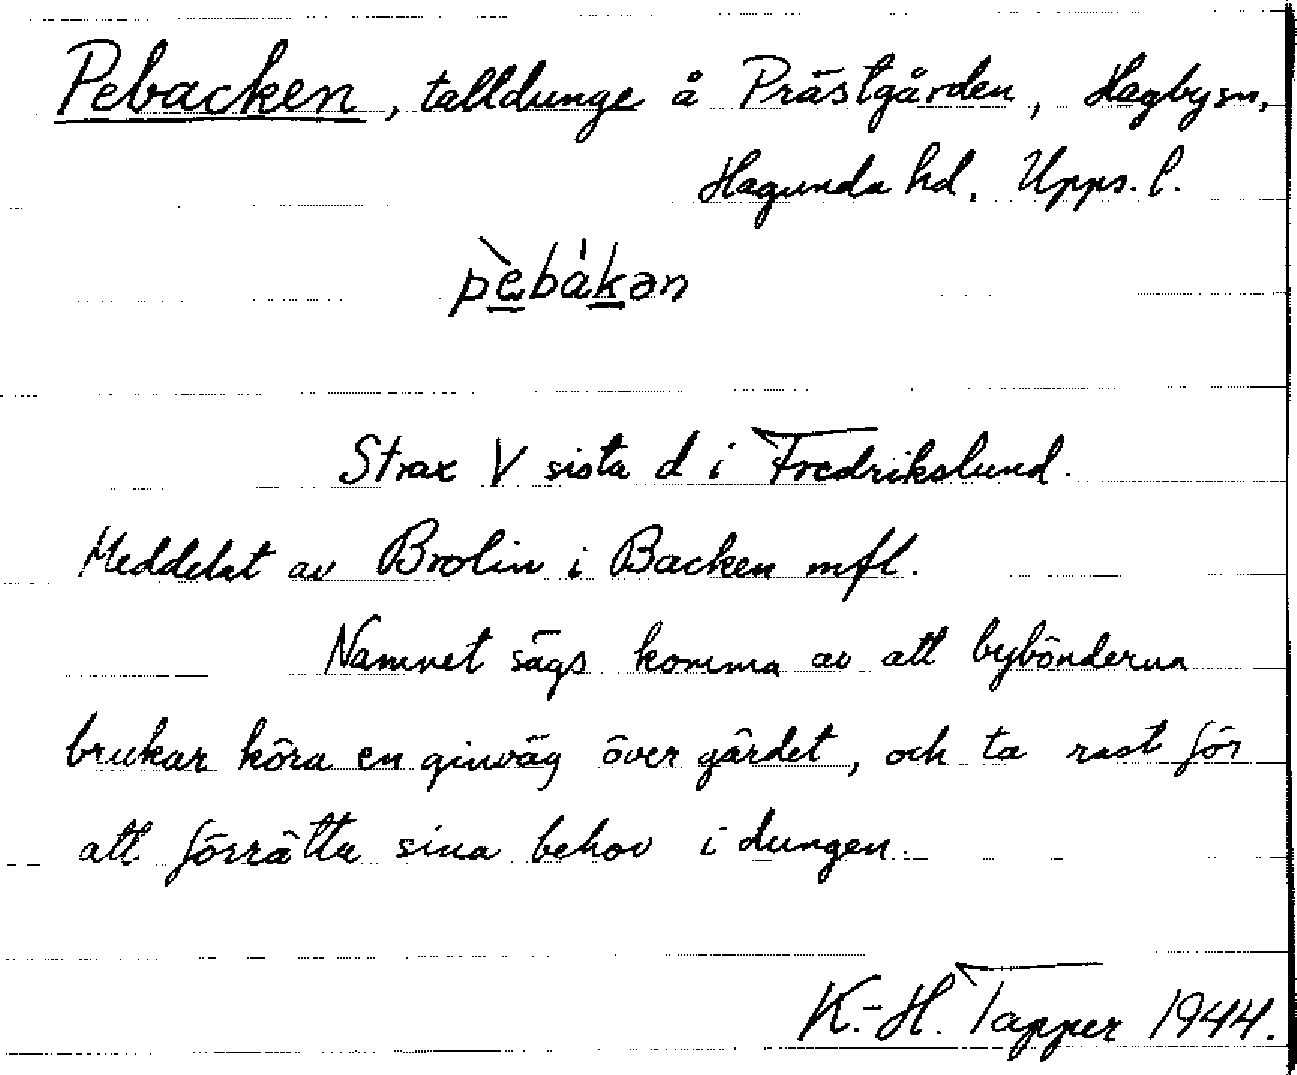 Pebacken, talldunge å Prästgården, Hagby sn,
Hagunda hd. Upps. l.
pèbákən
Strax V sista d i Fredrikslund.
Meddelat av Brolin i Backen mfl.
Namnet sägs komma av att bybönderna
brukar köra en ginväg över gärdet, och ta rast för
att förrätta sina behov i dungen.
K.-H. Tapper 1944.